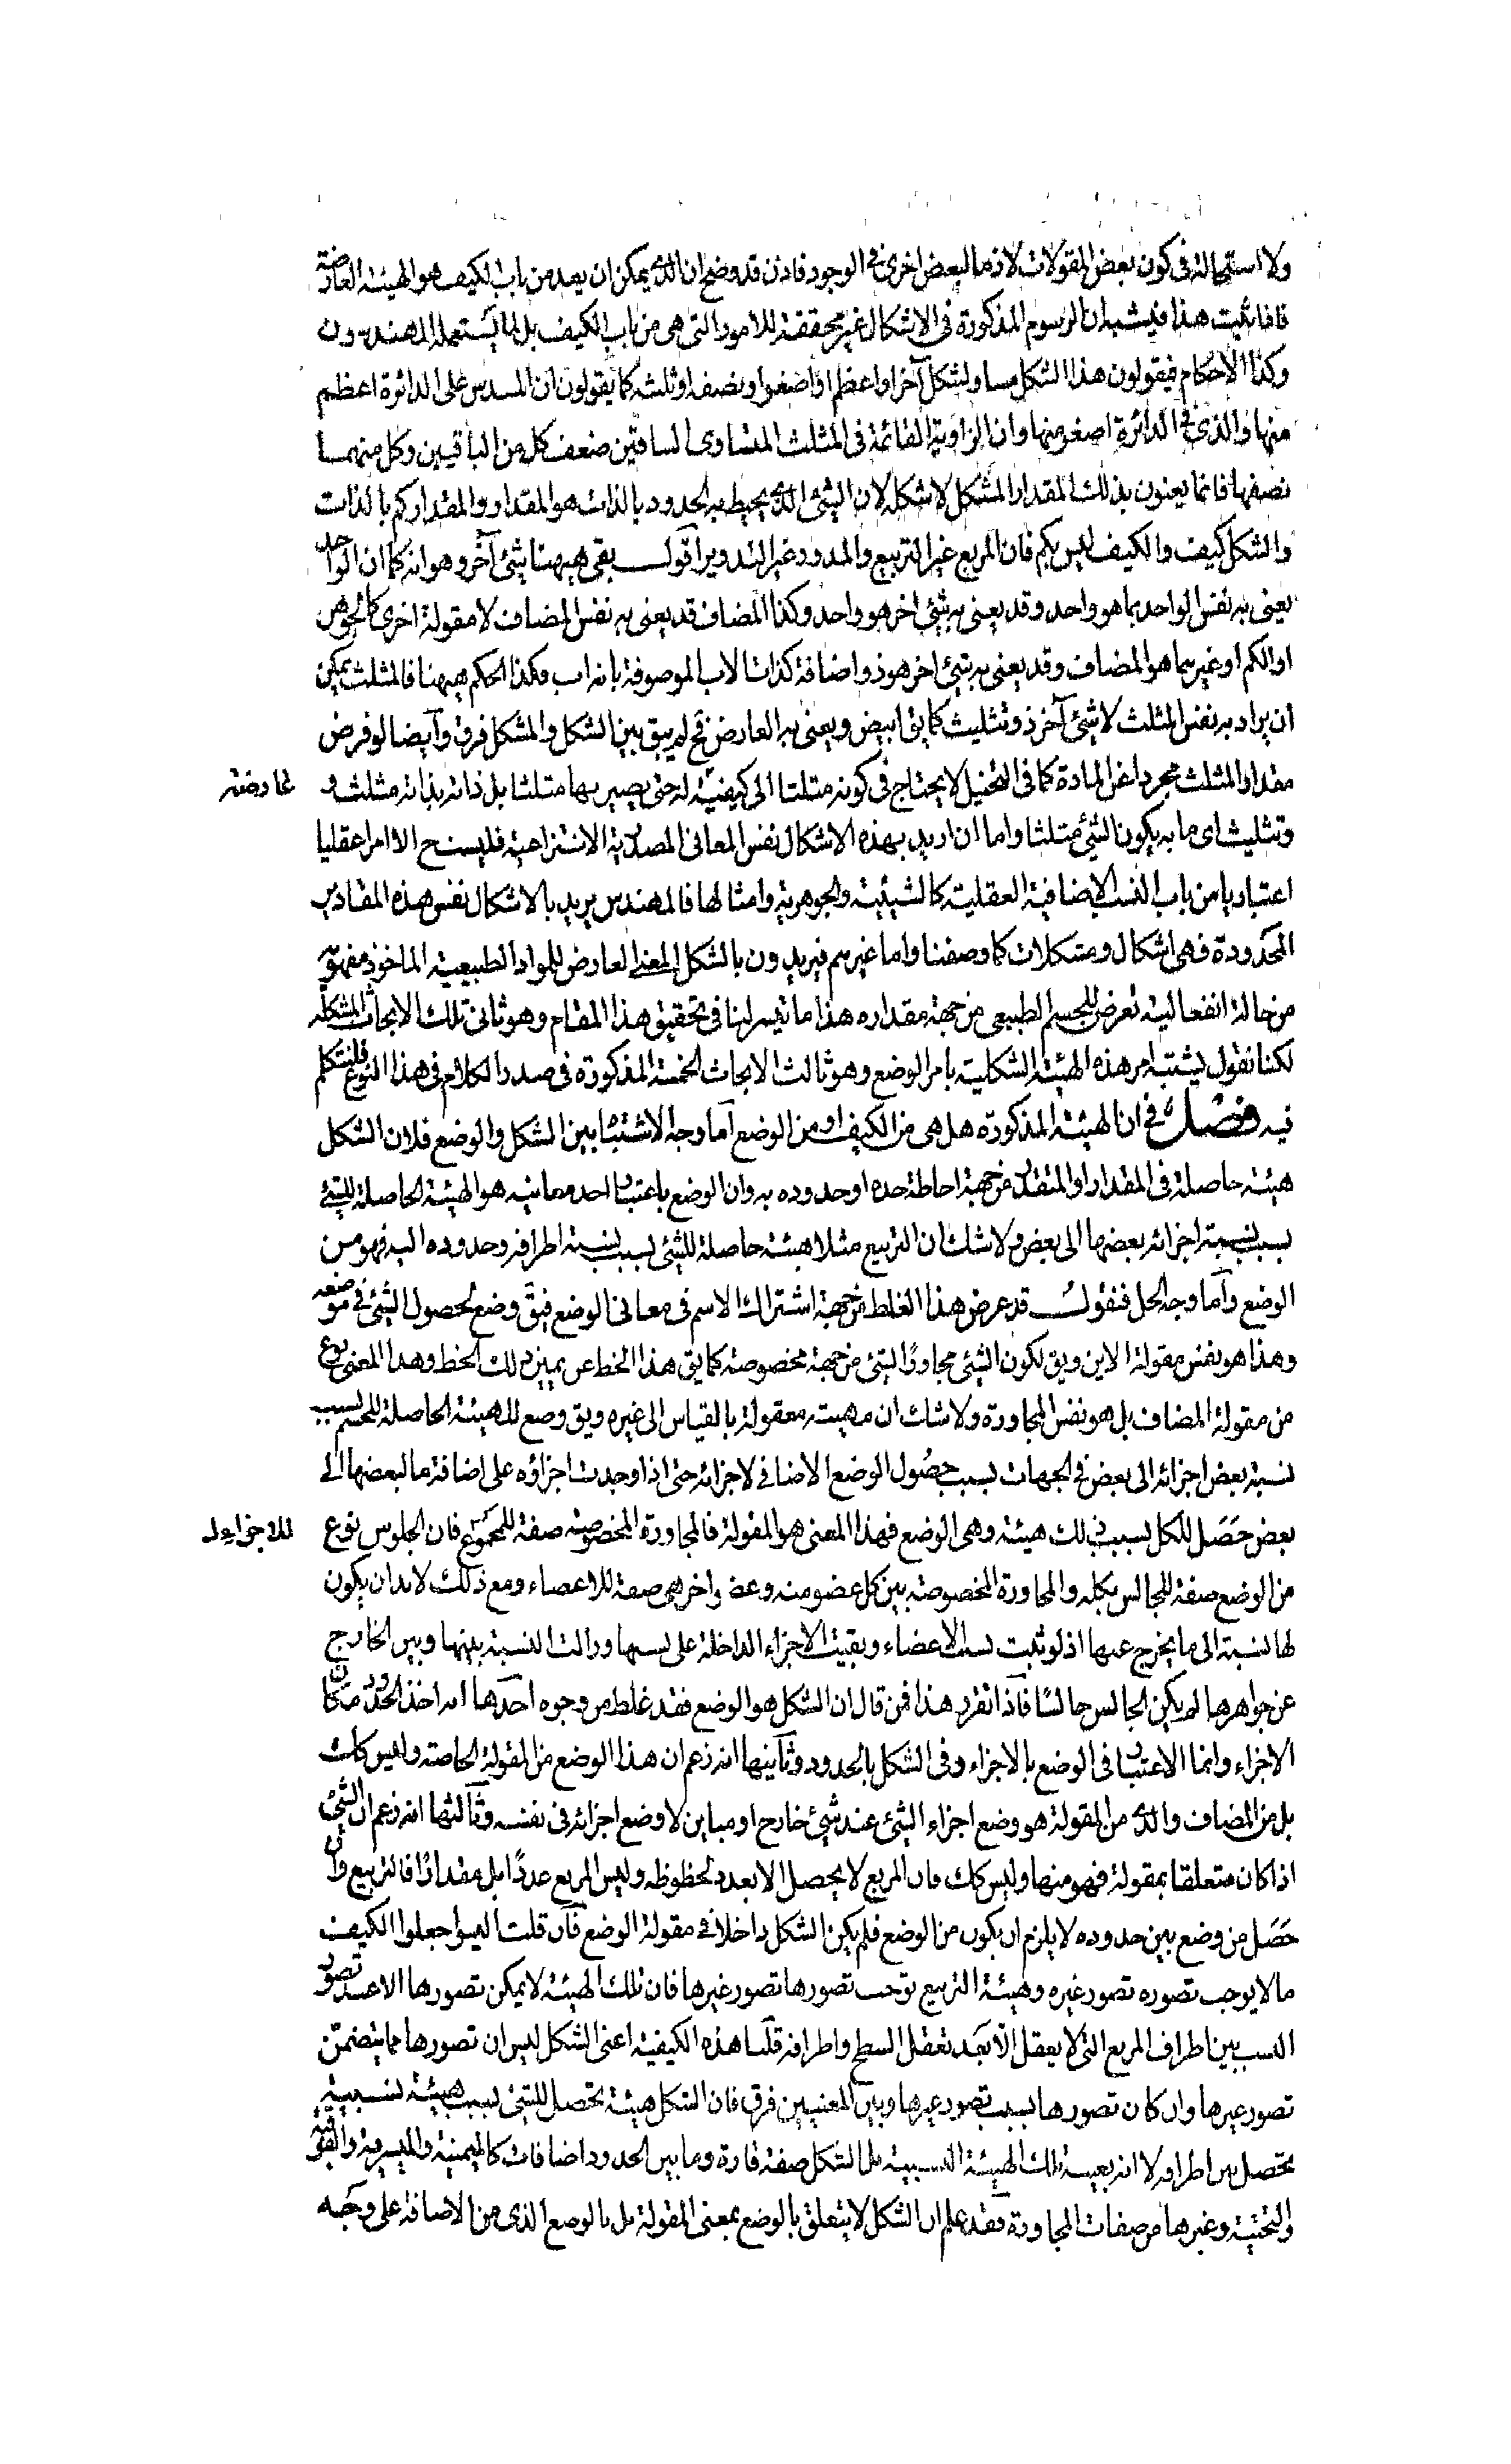 ولا استحالة فى كون بعض المقولات لازما لبعض اخرى فى الوجود فاذن قد وضح ان الذى يمكن ان يعد من باب الكيف هو الهيئة العارضة
فاذا ثبت هذا فيشبه ان الرسوم المذكورة فى الاشكال غير محققة للامور التى هى من باب الكيف بل لما يستعمله المهندسون
وكذا الاحكام فيقولون هذا الشكل مساو لشكل آخر او اعظم او اصغر او نصفه او ثلثه كما يقولون ان المسدس على الدائرة اعظم
منها والذى فى الدائرة اصغر منها وان الزاوية القائمة فى المثلث المتساوى الساقين ضعف كل من الباقيين وكل منهما
نصفها فانما يعنون بذلك المقدار المشكل لا شكله لان الشئ الذى يحيط به الحدود بالذات هو المقدار والمقدار كم بالذات
والشكل كيف والكيف ليس بكم فان المربع غير التربيع والمدور غير التدوير اقول بقى هيهنا شئ آخر وهو انه كما ان الواحد
يعنى به نفس الواحد بما هو واحد وقد يعنى به شئ اخر هو واحد وكذا المضاف قد يعنى به نفس المضاف لا مقولة اخرى كالجوهر
او الكم او غيرهما هو المضاف وقد يعنى به شئ اخر هو ذو اضافة كذات الاب الموصوفة بانه اب فكذا الحكم هيهنا فالمثلث يمكن
ان يراد به نفس المثلث لا شئ آخر ذو تثليث كما يق ابيض ويعنى به العارض فح لم يبق بين الشكل والمشكل فرق وايضا لو فرض
مقدار المثلث مجردا عن المادة كما فى التخيل لا يحتاج فى كونه مثلثا الى كيفية له حتى يصير بها مثلثا بل ذاته بذاته مثلث و
عارضة
وتثليث اى ما به يكون الشئ مثلثا واما ان اريد بهذه الاشكال نفس المعانى المصدرية الانتزاعية فليست ح الا امرا عقليا
اعتباريا من باب النسب الاضافية العقلية كالشيئية والجوهرية وامثالها فالمهندس يريد بالاشكال نفس هذه المقادير
المحدودة فهى اشكال ومشكلات كما وصفنا واما غيرهم فيريدون بالشكل المعنى العارض للمواد الطبيعية الماخوذ مفهومه
من حالة انفعالية تعرض للجسم الطبيعى من جهة مقداره هذا ما تيسر لنا فى تحقيق هذا المقام وهو ثانى تلك الابحاث المشكلة
لكنا نقول يشتبه امر هذه الهيئة الشكلية بامر الوضع وهو ثالث الابحاث الخمسة المذكورة فى صدر الكلام فى هذا النوع فلنتكلم
فيه فصل فى ان الهيئة المذكورة هل هى من الكيف او من الوضع اما وجه الاشتباه بين الشكل والوضع فلان الشكل
هيئة حاصلة فى المقدار او المتقدر من جهة احاطة حده او حدوده به وان الوضع باعتبار احد معانيه هو الهيئة الحاصلة للشئ
بسبب نسبة اجزائه بعضها الى بعض ولا شك ان التربيع مثلا هيئة حاصلة للشئ بسبب نسبة اطرافه وحدوده اليه فهو من
الوضع واما وجه الحل فنقول قد عرض هذا الغلط من جهة اشتراك الاسم فى معانى الوضع فيق وضع لحصول الشئ فى موضعه
وهذا هو نفس مقولة الاين ويق لكون الشئ مجاورا لشئ من جهة مخصوصة كما يق هذا الخط عن يمين ذلك الخط وهذا المعنى نوع
من مقولة المضاف بل هو نفس المجاورة ولا شك ان مهيته معقولة بالقياس الى غيره ويق وضع للهيئة الحاصلة للجسم بسبب
نسبة بعض اجزائه الى بعض فى الجهات بسبب حصول الوضع الاضافى لاجزائه حتى اذا وجدت اجزاؤه على اضافة ما لبعضها الى
بعض حصل للكل بسبب ذلك هيئة وهى الوضع فهذا المعنى هو المقولة فالمجاورة المخصوصة صفة للمجموع فان الجلوس نوع
للاجزاء
من الوضع صفة للجالس بكله والمجاورة المخصوصة بين كل عضو منه وعضو اخر هى صفة للاعضاء ومع ذلك لا بد ان يكون
لها نسبة الى ما يخرج عنها اذ لو ثبتت تلك الاعضاء وبقيت الاجزاء الداخلة على نسبها وزالت النسبة بينها وبين الخارج
عن جواهرها لم يكن الجالس جالسا فاذا تقرر هذا فمن قال ان الشكل هو الوضع فقد غلط من وجوه احدها انه اخذ الحدود مكان
الاجزاء وانما الاعتبار فى الوضع بالاجزاء وفى الشكل بالحدود وثانيها انه زعم ان هذا الوضع من المقولة الخاصة وليس كك
بل من المضاف والذى من المقولة هو وضع اجزاء الشئ عند شئ خارج او مباين لا وضع اجزائه فى نفسه وثالثها انه زعم ان الشئ
اذا كان متعلقا بمقولة فهو منها وليس كك فان المربع لا يحصل الا بعدد لخطوطه وليس المربع عددا بل مقدارا فالتربيع وان
حصل من وضع بين حدوده لا يلزم ان يكون من الوضع فلم يكن الشكل داخلا فى مقولة الوضع فان قلت اليسوا جعلوا الكيف
ما لا يوجب تصوره تصور غيره وهيئة التربيع توجب تصورها تصور غيرها فان تلك الهيئة لا يمكن تصورها الا عند تصور
النسب بين اطراف المربع التى لا يعقل الا بعد تعقل السطح واطرافه قلنا هذه الكيفية اعنى الشكل ليس ان تصورها مما يتضمن
تصور غيرها وان كان تصورها بسبب تصور غيرها وبين المعنيين فرق فان الشكل هيئة تحصل للشئ بسبب هيئة نسبية
تحصل بين اطرافه لا انه بعينه تلك الهيئة النسبية بل الشكل صفة قارة وما بين الحدود اضافات كالميمنة والميسرة والفوقية
والتحتية وغيرها من صفات المجاورة فقد علم ان الشكل لا يتعلق بالوضع بمعنى المقولة بل بالوضع الذى من الاضافة على وجه